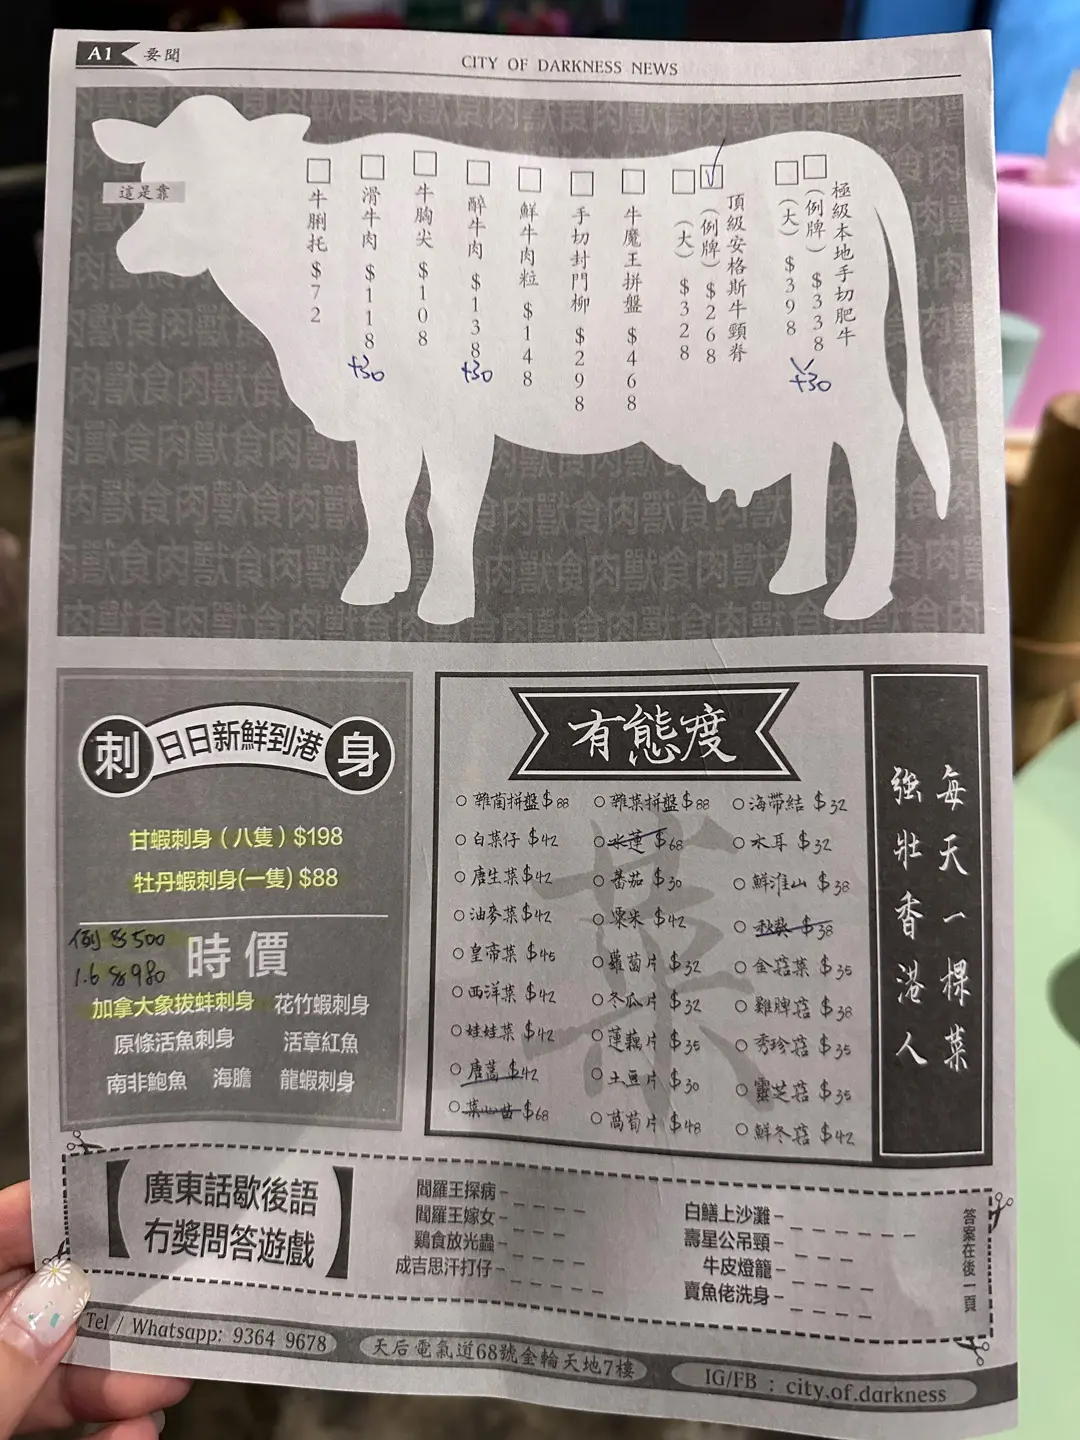 A1 要聞
CITY OF DARKNESS NEWS
獸食肉獸食肉獸食肉獸食肉
這是靠
牛脷托 $72
滑牛肉 $118
+30
牛胸尖 $108
醉牛肉 $138
+30
鮮牛肉粒 $148
手切封門柳 $298
牛魔王拼盤 $468
頂級安格斯牛頸脊
(例牌) $268
(大) $328
極級本地手切肥牛
(例牌) $338
(大) $398
+30
刺 日日新鮮到港 身
甘蝦刺身(八隻) $198
牡丹蝦刺身(一隻) $88
例 $500
1.6 $980
時價
加拿大象拔蚌刺身 花竹蝦刺身
原條活魚刺身 活章紅魚
南非鮑魚 海膽 龍蝦刺身
有態度
菜
雜菌拼盤 $88
白菜仔 $42
唐生菜 $42
油麥菜 $42
皇帝菜 $45
西洋菜 $42
娃娃菜 $42
唐蒿 $42
菜心苗 $68
雜菜拼盤 $88
水蓮 $68
番茄 $30
粟米 $42
蘿蔔片 $32
冬瓜片 $32
蓮藕片 $35
土豆片 $30
萵筍片 $48
海帶結 $32
木耳 $32
鮮淮山 $38
秋葵 $38
金菇菜 $35
雞脾菇 $38
秀珍菇 $35
靈芝菇 $35
鮮冬菇 $42
每天一棵菜
強壯香港人
廣東話歇後語
冇獎問答遊戲
閻羅王探病– _ _ _ _
閻羅王嫁女– _ _ _
鷄食放光蟲– _ _ _ _
成吉思汗打仔– _ _ _ _ _
白鱔上沙灘– _ _ _ _ _ _
壽星公吊頸– _ _ _ _
牛皮燈籠– _ _ _ _
賣魚佬洗身– _ _ _ _
答案在後一頁
Tel / Whatsapp: 9364 9678
天后電氣道68號金輪天地7樓
IG/FB : city.of.darkness